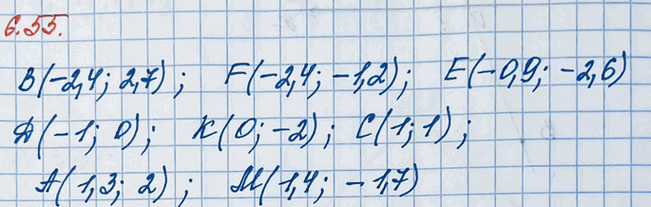 6.55.
B(-2,4; 2,7); F(-2,4; -1,2); E(-0,9; -2,6)
D(-1; 0); K(0; -2); C(1; 1);
A(1,3; 2); M(1,4; -1,7)